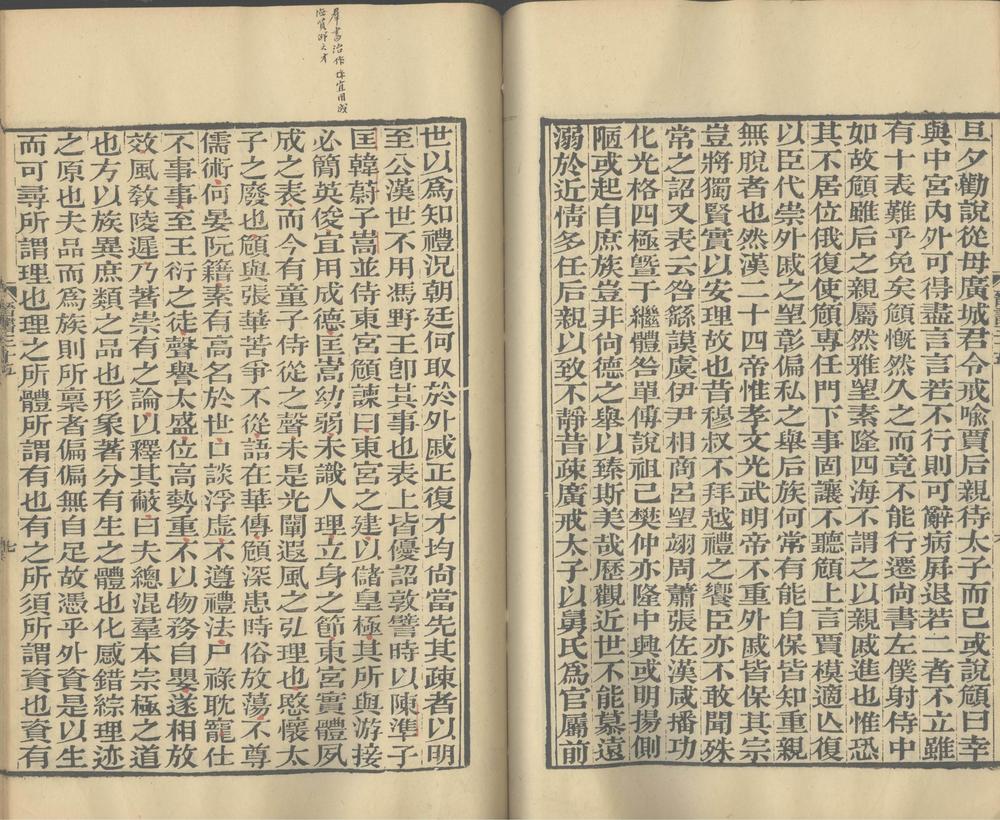 旦夕勸說從母廣城君令戒喻賈后親待太子而已或說頠曰幸
與中宮內外可得盡言言若不行則可辭病屏退若二者不立雖
有十表難乎免矣頠慨然久之而竟不能行遷尚書左僕射侍中
如故頠雖后之親屬然雅望素隆四海不謂之以親戚進也惟恐
其不居位俄復使頠專任門下事固讓不聽頠上言賈模適亾復
以臣代崇外戚之望彰偏私之舉后族何常有能自保皆知重親
無脫者也然漢二十四帝惟孝文光武明帝不重外戚皆保其宗
豈將獨賢實以安理故也昔穆叔不拜越禮之饗臣亦不敢聞殊
常之詔又表云咎繇謨虞伊尹相商呂望翊周蕭張佐漢咸播功
化光格四極暨于繼體咎單傅說祖己樊仲亦隆中興或明揚側
陋或起自庶族豈非尙德之舉以臻斯美哉歷觀近世不能慕遠
溺於近情多任后親以致不靜昔疎廣戒太子以舅氏爲官屬前
世以爲知禮況朝廷何取於外戚正復才均尙當先其疎者以明
至公漢世不用馮野王卽其事也表上皆優詔敦譬時以陳準子
匡韓蔚子嵩並侍東宮頠諫曰東宮之建以儲皇極其所與游接
必簡英俊宜用成德匡嵩幼弱未識人理立身之節東宮實體夙
成之表而今有童子侍從之聲未是光闡遐風之弘理也愍懷太
子之廢也頠與張華苦爭不從語在華傳頠深患時俗放蕩不尊
儒術何晏阮籍素有高名於世口談浮虛不遵禮法尸祿耽寵仕
不事事至王衍之徒聲譽太盛位高勢重不以物務自嬰遂相放
效風敎陵遲乃著崇有之論以釋其蔽曰夫總混羣本宗極之道
也方以族異庶類之品也形象著分有生之體也化感錯綜理迹
之原也夫品而爲族則所稟者偏偏無自足故憑乎外資是以生
而可尋所謂理也理之所體所謂有也有之所須所謂資也資有
羣書治作